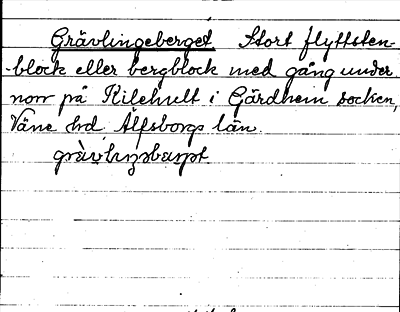 Grävlingeberget Stort flyttsten-
block eller bergblock med gång under
norr på Kilehult i Gärdhem socken,
Väne hd. Älfsborgs län.